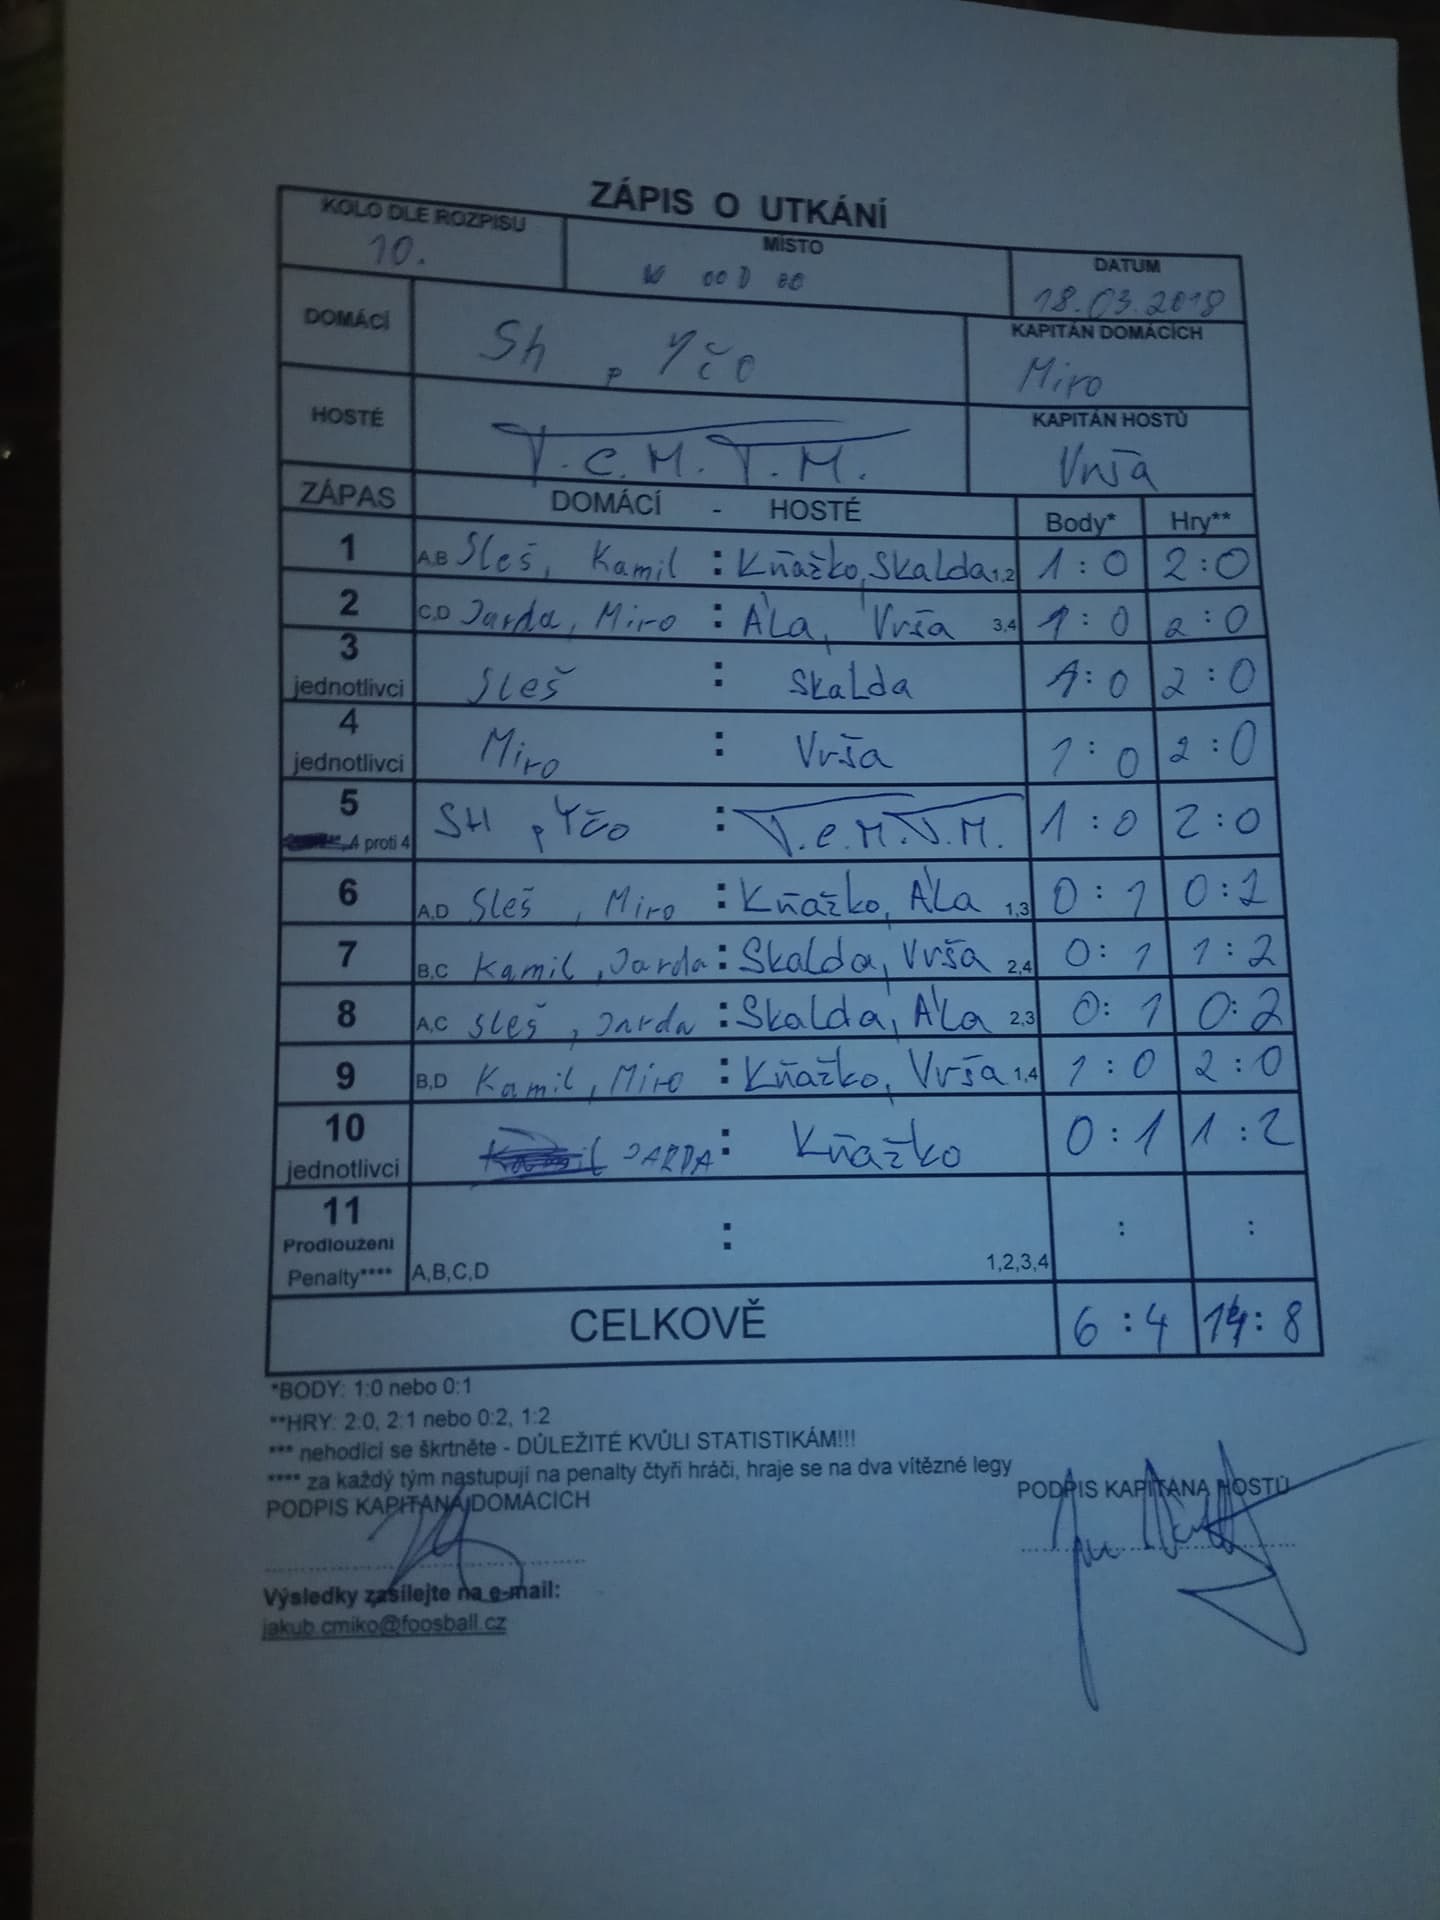 ZÁPIS O UTKÁNÍ
KOLO DLE ROZPISU MÍSTO DATUM
10. W OOD OO 18.03.2018
DOMÁCÍ Sh , p Yčo KAPITÁN DOMÁCÍCH
Miro
HOSTÉ T.C.M.T.M. KAPITÁN HOSTŮ
Vrša
ZÁPAS DOMÁCÍ - HOSTÉ Body* Hry**
1 A,B Sleš, Kamil : Kňažko, Skalda 1,2 1:0 2:0
2 C,D Jarda, Miro : ÁLa, Vrša 3,4 1:0 2:0
3 jednotlivci Sleš : Skalda 1:0 2:0
4 jednotlivci Miro : Vrša 1:0 2:0
5 4 proti 4 SH , p Yčo : T.C.M.T.M. 1:0 2:0
6 A,D Sleš , Miro : Kňažko, ÁLa 1,3 0:1 0:2
7 B,C Kamil , Jarda : Skalda, Vrša 2,4 0:1 1:2
8 A,C Sleš , Jarda : Skalda, ÁLa 2,3 0:1 0:2
9 B,D Kamil, Miro : Kňažko, Vrša 1,4 1:0 2:0
10 jednotlivci JARDA : Kňažko 0:1 1:2
11 : : :
Prodloužení
Penalty**** A,B,C,D 1,2,3,4
CELKOVĚ 6:4 14:8
*BODY: 1:0 nebo 0:1
**HRY: 2:0, 2:1 nebo 0:2, 1:2
*** nehodící se škrtněte - DŮLEŽITÉ KVŮLI STATISTIKÁM!!!
**** za každý tým nastupují na penalty čtyři hráči, hraje se na dva vítězné legy
PODPIS KAPITÁNA DOMÁCÍCH PODPIS KAPITÁNA HOSTŮ
Výsledky zasílejte na e-mail:
jakub.cmiko@foosball.cz